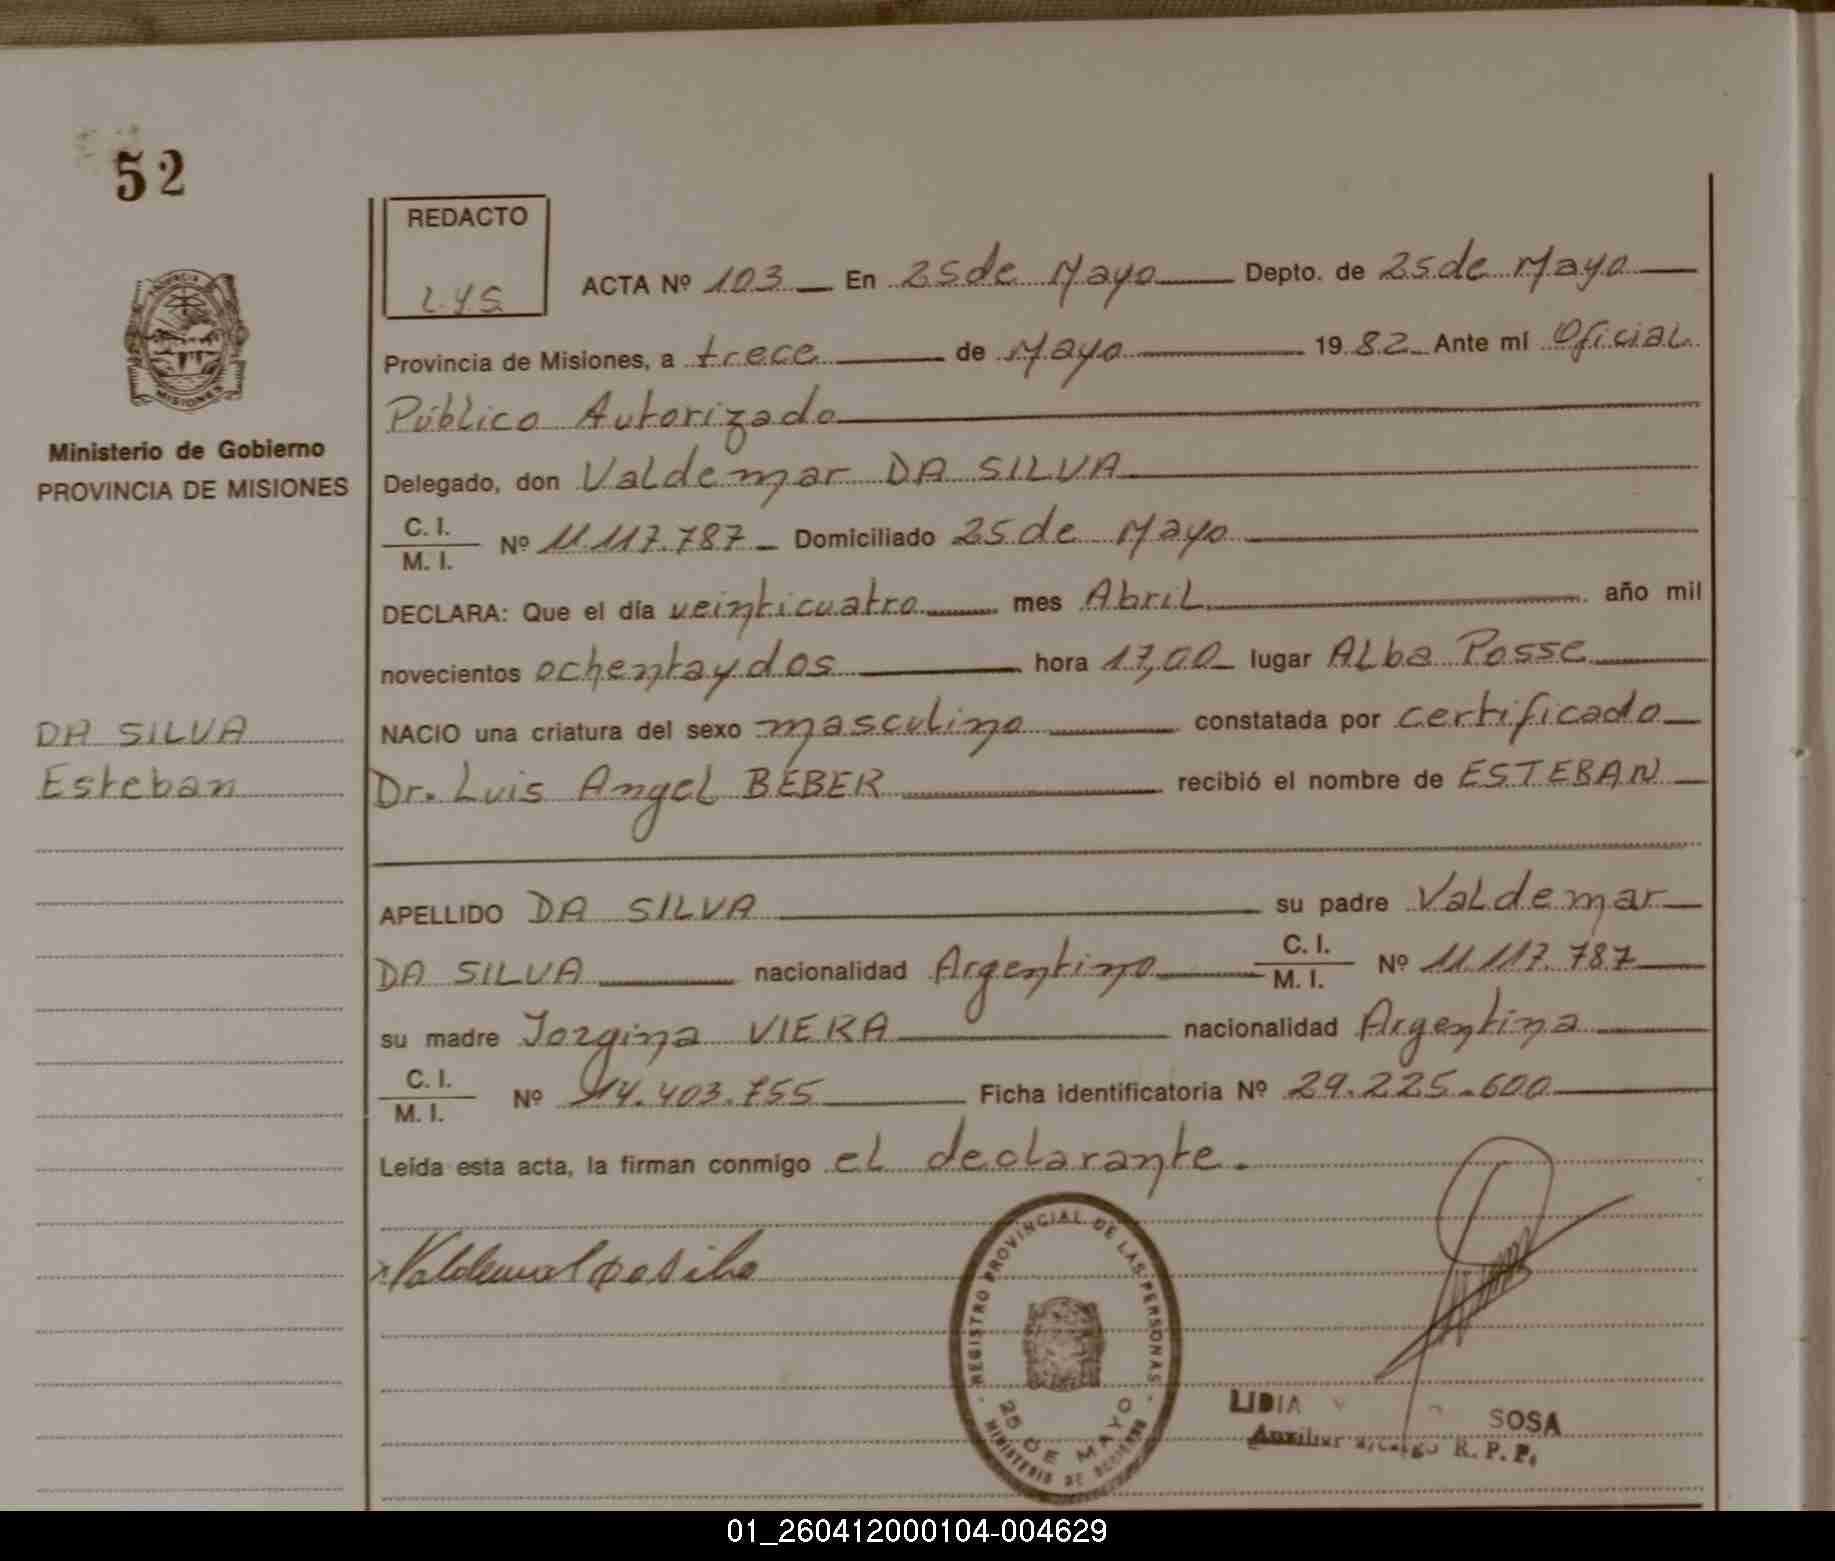 52
REDACTO
L.Y.S
ACTA Nº 103 En 25 de Mayo Depto. de 25 de Mayo
Provincia de Misiones, a trece de Mayo 1982 Ante mí Oficial
Público Autorizado
Ministerio de Gobierno
PROVINCIA DE MISIONES
Delegado, don Valdemar DA SILVA
C. I.
M. I.
Nº 11.117.787 Domiciliado 25 de Mayo
DECLARA: Que el día veinticuatro mes Abril año mil
novecientos ochentaydos hora 17,00 lugar Alba Posse
DA SILVA
Esteban
NACIO una criatura del sexo masculino constatada por certificado
Dr. Luis Angel BEBER recibió el nombre de ESTEBAN
APELLIDO DA SILVA su padre Valdemar
DA SILVA nacionalidad Argentino C. I. M. I. Nº 11.117.787
su madre Jorgina VIERA nacionalidad Argentina
C. I.
M. I.
Nº 14.403.755 Ficha identificatoria Nº 29.225.600
Leída esta acta, la firman conmigo el declarante.
REGISTRO PROVINCIAL DE LAS PERSONAS
25 DE MAYO
MINISTERIO DE GOBIERNO
LIDIA SOSA
Auxiliar R. P. P.
01_260412000104-004629